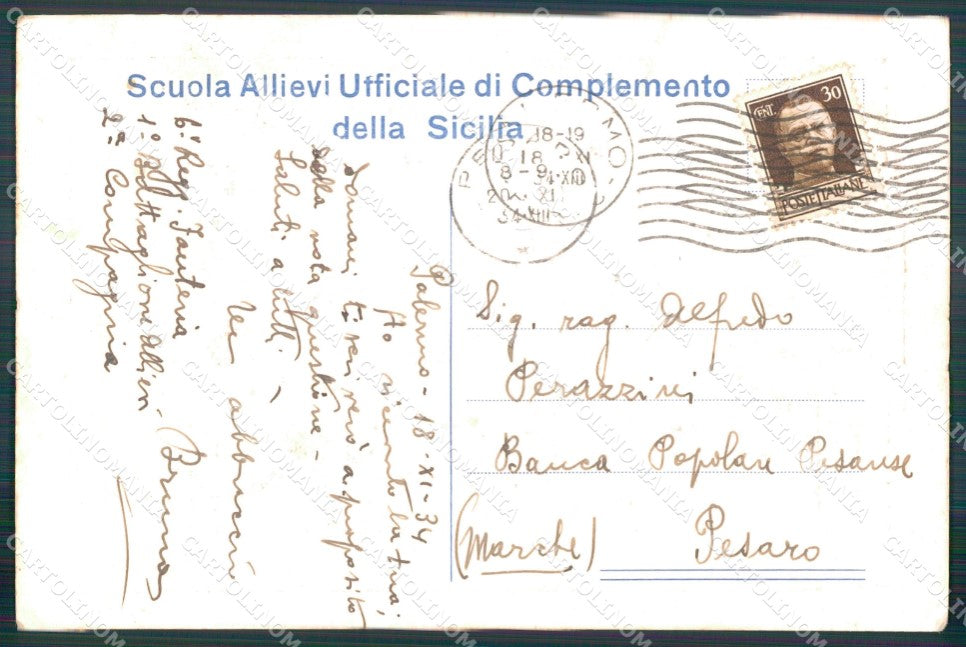 Scuola Allievi Ufficiale di Complemento
della Sicilia
CENT. 30
POSTE ITALIANE
18-19
18 XI
8-9
20 XI
34-XIII
Palermo - 18-XI-34
Ho ricevuto la tua;
domani ti scriverò a proposito
della nota questione -
Saluti a tutti -
Un abbraccio
Bruno
6° Regg. Fanteria
1° Battaglione Allievi
2ª Compagnia
Sig. rag. Alfredo
Perazzini
Banca Popolare Pesarese
(Marche) Pesaro
CARTOLINOMANIA